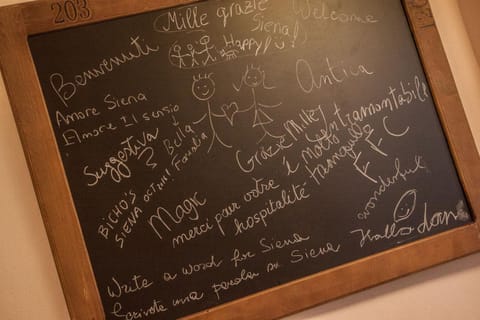 203
Mille grazie
Siena!
Welcome
Benvenuti
Happy!
Antica
Amore Siena
Amore Il sensio
Suggestiva
Bella
BICHO'S
SIENA
Famiglia
Grazie Mille
intramontabile
i molto tranquillo
Magic
merci pour votre
hospitalité
wonderful
Hallo
Write a word for Siena
Scrivete una parola su Siena